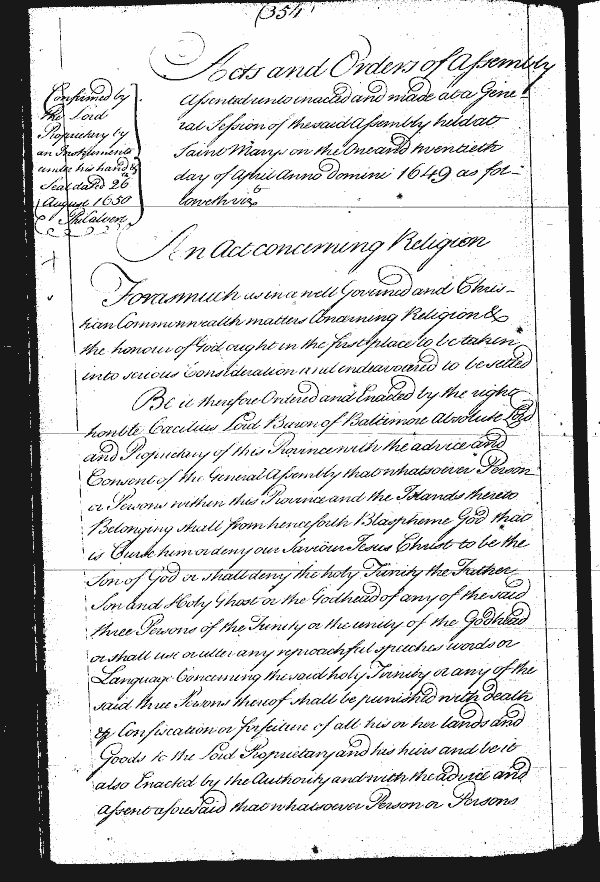 (354
Acts and Orders of Assembly
assented unto enacted and made at a Gene-
ral Session of the said Assembly held at
Saint Marys on the One and twentieth
day of April Anno Domini 1649 as fol-
loweth vizt
Confirmed by
the Lord
Proprietary by
an Instrument
under his hand &
Seal dated 26
August 1650
Phil Calvert
An Act concerning Religion
Forasmuch as in a well Governed and Chris-
tian Commonwealth matters Concerning Religion &
the honour of God ought in the first place to be taken
into serious Consideration and endeavoured to be settled
Be it therefore Ordered and Enacted by the right
honble Cecilius Lord Baron of Baltimore Absolute Lord
and Proprietary of this Province with the advice and
Consent of the General Assembly that whatsoever Person
or Persons within this Province and the Islands thereto
Belonging shall from henceforth Blaspheme God that
is Curse him or deny our Saviour Jesus Christ to be the
Son of God or shall deny the holy Trinity the Father
Son and Holy Ghost or the Godhead of any of the said
three Persons of the Trinity or the unity of the Godhead
or shall use or utter any reproachful speeches words or
Language Concerning the said holy Trinity or any of the
said three Persons thereof shall be punished with death
& Confiscation or forfeiture of all his or her lands and
Goods to the Lord Proprietary and his heirs and be it
also Enacted by the Authority and with the advice and
assent aforesaid that whatsoever Person or Persons